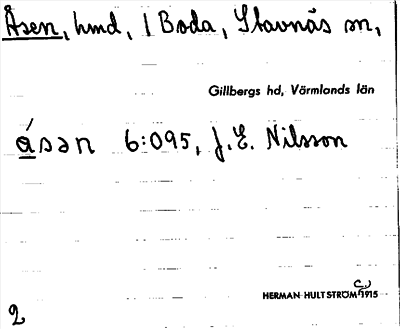 Åsen, hmd, i Boda, Stavnäs sn,
Gillbergs hd, Värmlands län
ásən 6:095, J. E. Nilsson
HERMAN HULTSTRÖM c) 1915
2